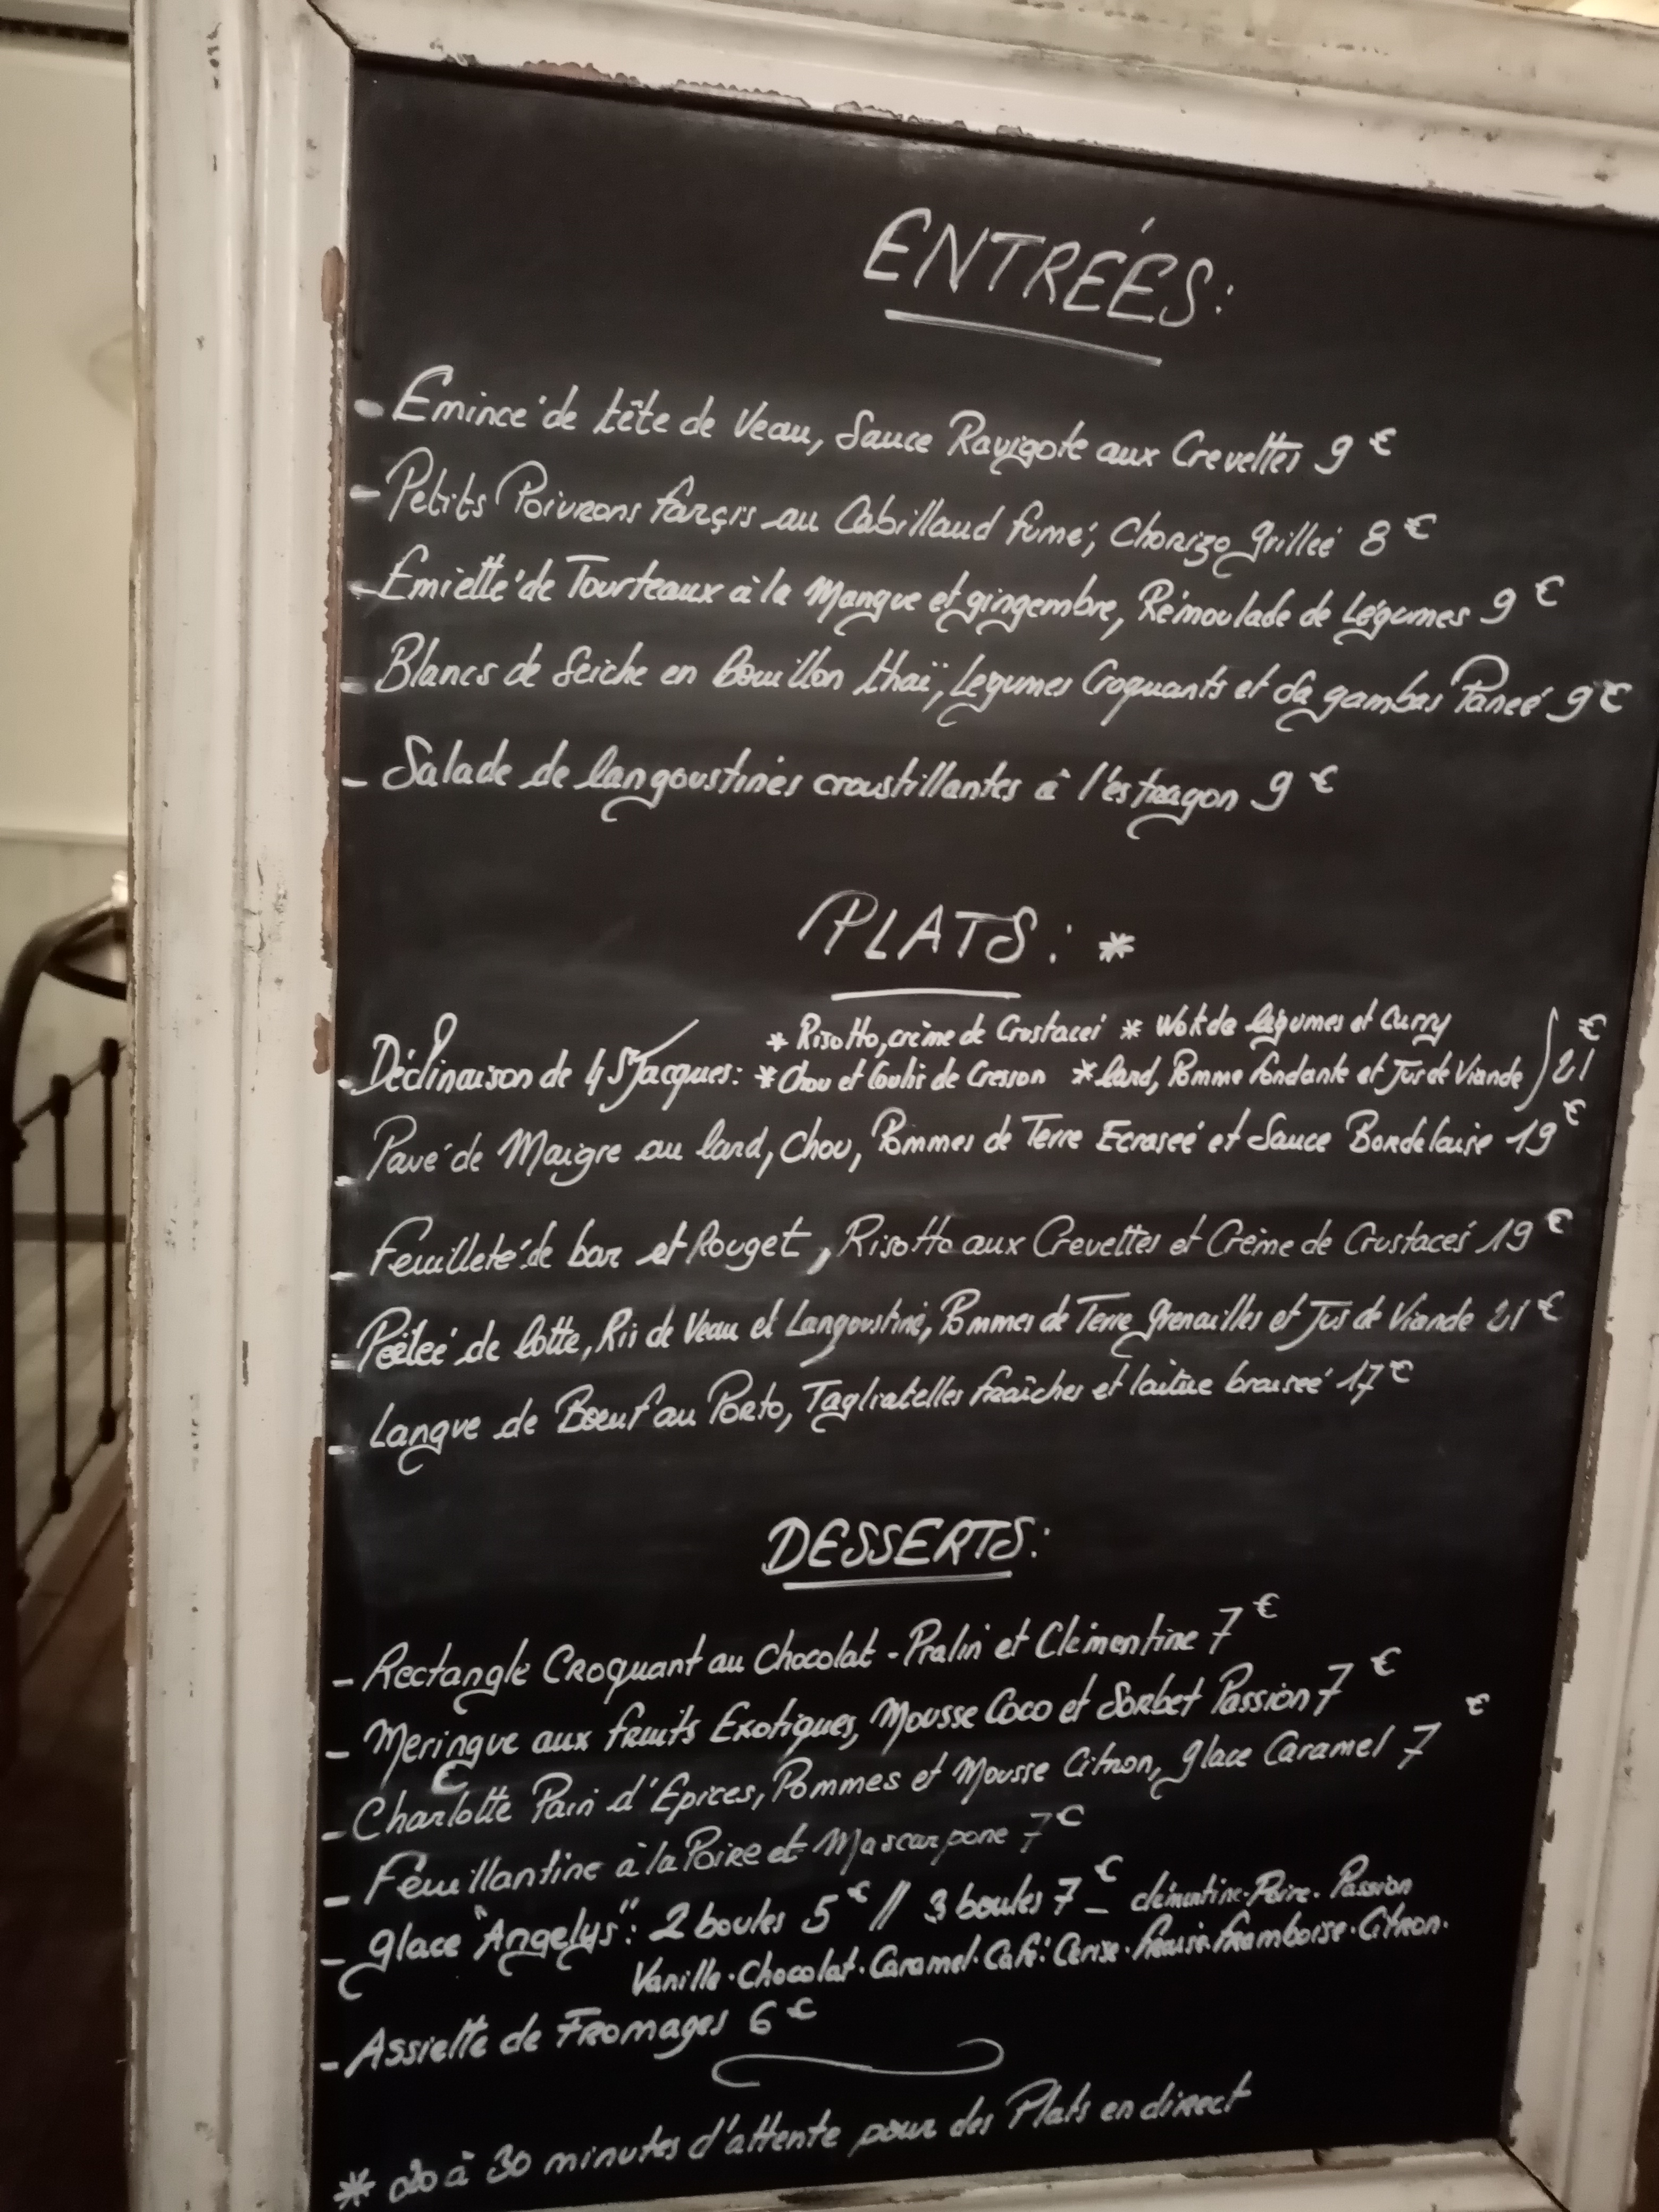 ENTRÉES:
- Emincé de tête de Veau, Sauce Ravigote aux Crevettes 9 €
- Petits Poivrons farçis au Cabillaud fumé, Chorizo grillée 8 €
- Emietté de Tourteaux à la Mangue et gingembre, Rémoulade de Légumes 9 €
- Blancs de Seiche en bouillon thaï, Légumes Croquants et Sa gambas Paneé 9 €
- Salade de langoustines croustillantes à l'estragon 9 €
PLATS: *
* Risotto, crème de Crustacés * Wok de légumes et Curry
- Déclinaison de 4 St Jacques: * Chou et Coulis de Cresson * lard, Pomme fondante et Jus de Viande 21 €
- Pavé de Maigre au lard, Chou, Pommes de Terre Ecraseé et Sauce Bordelaise 19 €
- Feuilleté de bar et Rouget, Risotto aux Crevettes et Crème de Crustacés 19 €
- Pôeleé de lotte, Ris de Veau et Langoustine, Pommes de Terre grenailles et Jus de Viande 21 €
- Langue de Bœuf au Porto, Tagliatelles fraîches et laitue braiseé 17 €
DESSERTS:
- Rectangle Croquant au Chocolat - Pralin et Clémentine 7 €
- Meringue aux fruits Exotiques, Mousse Coco et Sorbet Passion 7 €
- Charlotte Pain d'Epices, Pommes et Mousse Citron, glace Caramel 7 €
- Feuillantine à la Poire et Mascarpone 7 €
- glace "Angelys": 2 boules 5 € // 3 boules 7 € - clémentine. Poire. Passion
Vanille. Chocolat. Caramel. Café. Cerise. fraise. framboise. Citron.
- Assiette de Fromages 6 €
* 20 à 30 minutes d'attente pour des Plats en direct